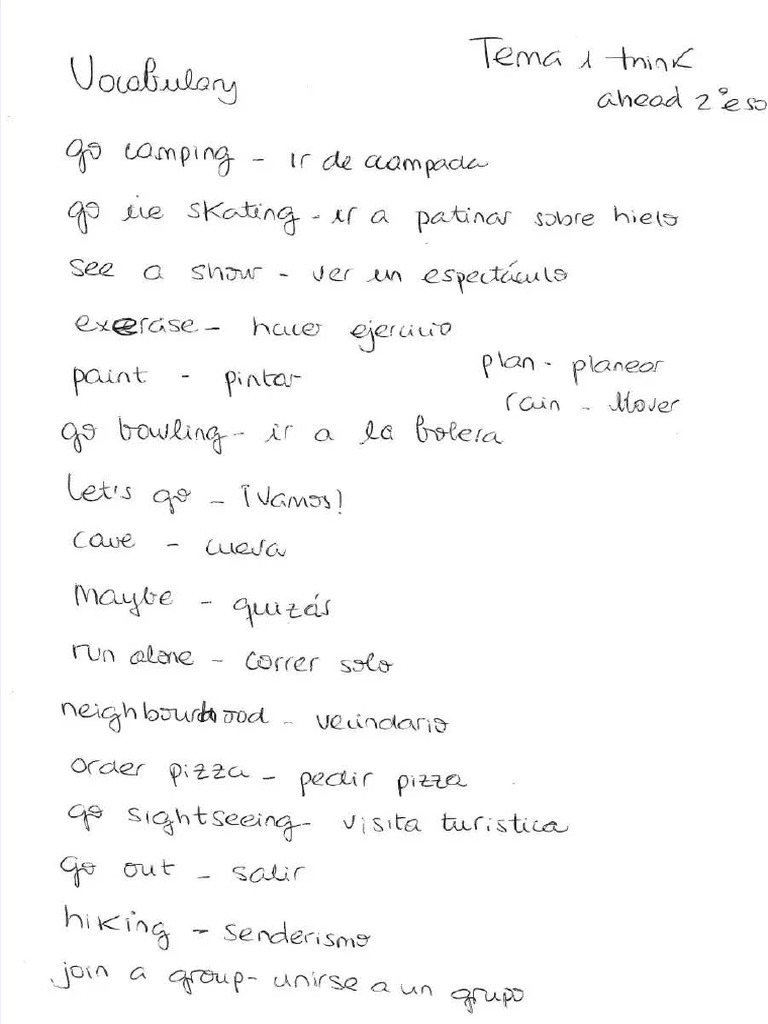 Vocabulary
Tema 1 think
ahead 2º eso
go camping - ir de acampada
go ice skating - ir a patinar sobre hielo
see a show - ver un espectáculo
exercise - hacer ejercicio
paint - pintar
plan - planear
rain - llover
go bowling - ir a la bolera
let's go - ¡Vamos!
cave - cueva
Maybe - quizás
run alone - correr solo
neighbourhood - vecindario
order pizza - pedir pizza
go sightseeing - visita turistica
go out - salir
hiking - senderismo
join a group - unirse a un grupo